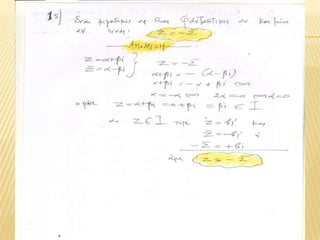 1 s) Ένας μιγαδικός αρ. είναι Φανταστικός αν και μόνο
αν είναι: Z = - Z̄
Απόδειξη
Z = α+βi } Z = - Z̄
Z̄ = α-βi α+βi = - (α-βi)
α+βi = -α + βi
α = -α 2α=0 α=0
Z = α+βi = 0+βi = βi ∈ I
αν Z ∈ I τότε Z = βi και
Z̄ = -βi
- Z̄ = +βi
άρα Z = - Z̄